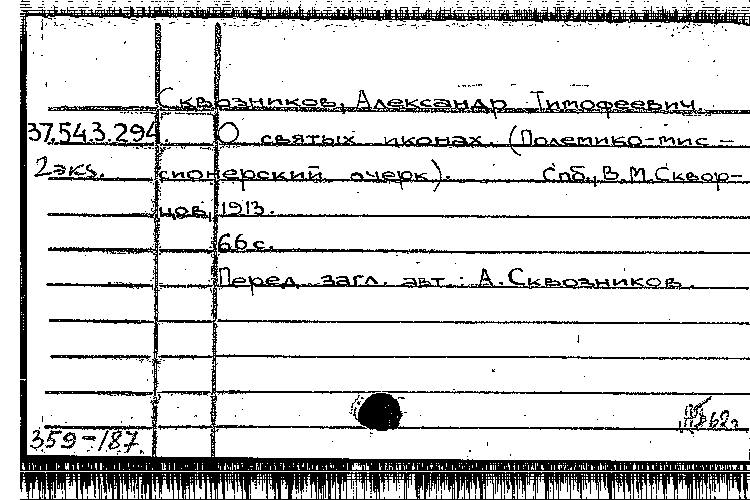 Сквозников, Александр Тимофеевич.
37.543.294. О святых иконах. (Полемико-мис-
2экз. сионерский очерк). Спб., В.М.Сквор-
цов, 1913.
66 с.
Перед загл. авт.: А.Сквозников.
62г.
359-187